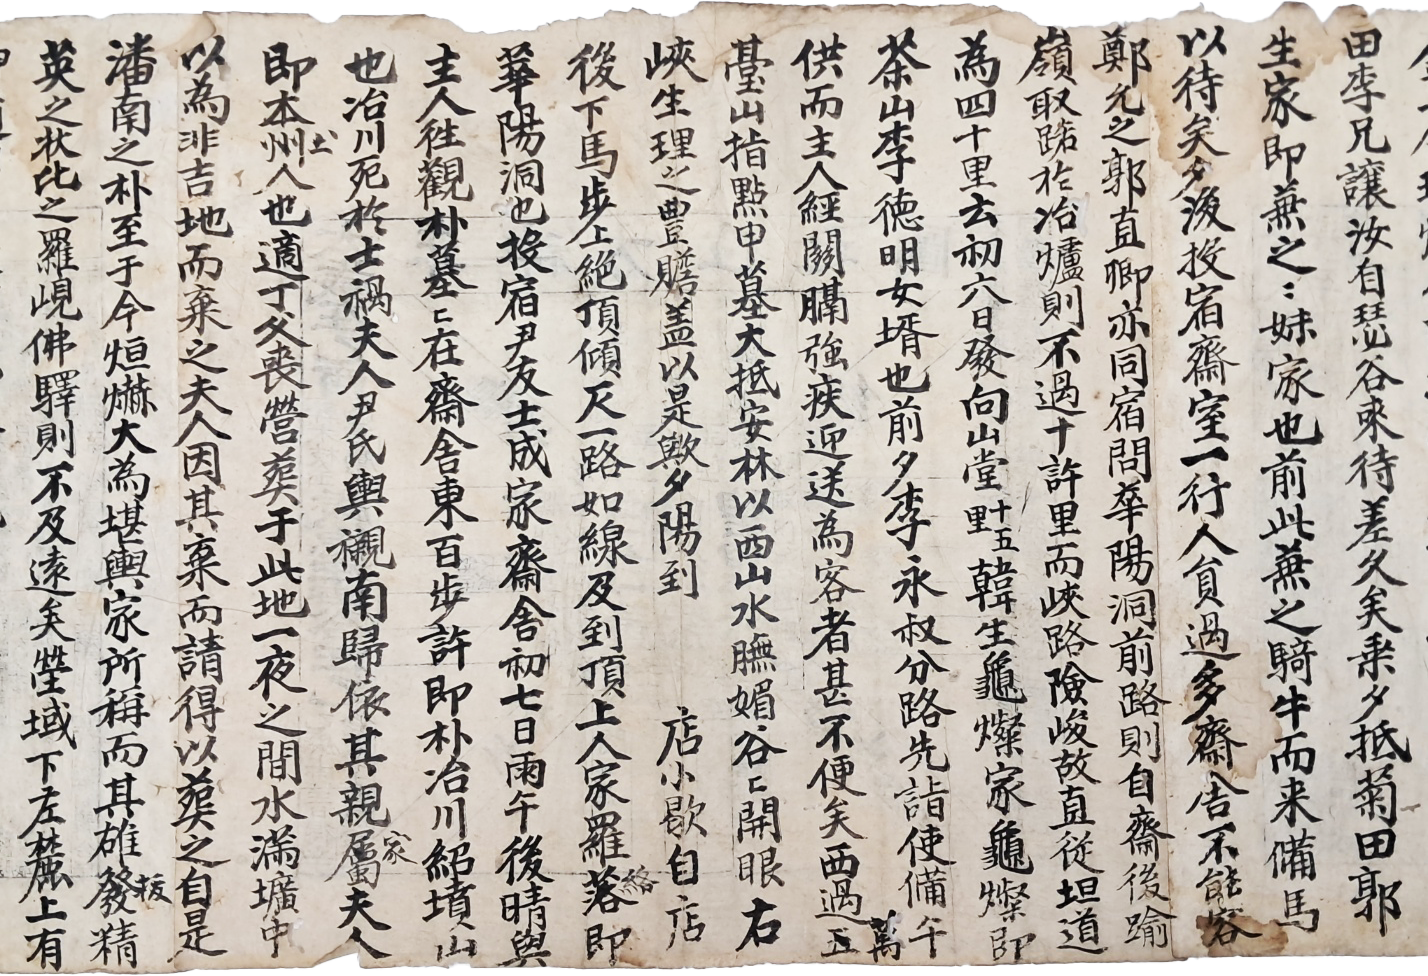 田李兄讓汝自琵谷來待差久矣乘夕抵菊田郭
生家即蕪之〻妹家也前此蕪之騎牛而来備馬
以待矣夕後投宿齋室一行人負過多齋舍不能容
鄭允之郭直卿亦同宿問華陽洞前路則自齋後踰
嶺取路於冶爐則不過十許里而峽路險峻故直從坦道
為四十里云初六日發向山堂十五里韓生龜燦家龜燦即
茶山李德明女壻也前夕李永叔分路先詣使備午
供而主人經關膈強疾迎送為客者甚不便矣西過五萬
臺山指點申墓大抵安林以西山水嫵媚谷〻開眼右
峽生理之豊贍盖以是歟夕陽到 店小歇自店
後下馬步上絶頂傾仄一路如線及到頂上人家羅落絡即
華陽洞也投宿尹友士成家齋舍初七日雨午後晴與
主人徃觀朴墓〻在齋舍東百步許即朴冶川紹墳山
也冶川死於士禍夫人尹氏輿櫬南歸依其親屬家夫人
即本州土人也適丁父喪營葬于此地一夜之間水滿壙中
以為非吉地而棄之夫人因其棄而請得以葬之自是
潘南之朴至于今烜爀大為堪輿家所稱而其雄發拔精
英之狀比之羅峴佛驛則不及遠矣塋域下左麓上有